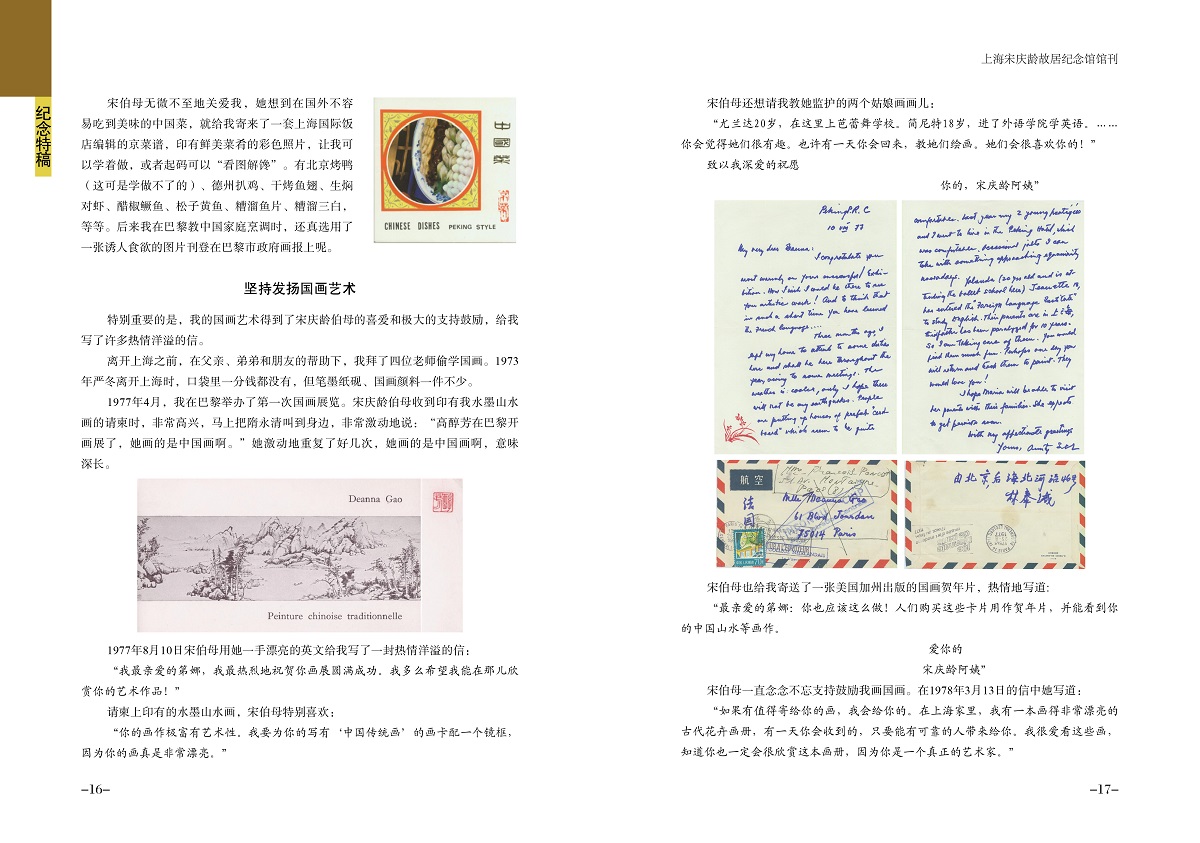 纪念特稿
宋伯母无微不至地关爱我，她想到在国外不容
易吃到美味的中国菜，就给我寄来了一套上海国际饭
店编辑的京菜谱，印有鲜美菜肴的彩色照片，让我可
以学着做，或者起码可以“看图解馋”。有北京烤鸭
（这可是学做不了的）、德州扒鸡、干烤鱼翅、生焖
对虾、醋椒鳜鱼、松子黄鱼、糟溜鱼片、糟溜三白，
等等。后来我在巴黎教中国家庭烹调时，还真选用了
一张诱人食欲的图片刊登在巴黎市政府画报上呢。
中國菜
CHINESE DISHES PEKING STYLE
坚持发扬国画艺术
特别重要的是，我的国画艺术得到了宋庆龄伯母的喜爱和极大的支持鼓励，给我
写了许多热情洋溢的信。
离开上海之前，在父亲、弟弟和朋友的帮助下，我拜了四位老师偷学国画。1973
年严冬离开上海时，口袋里一分钱都没有，但笔墨纸砚、国画颜料一件不少。
1977年4月，我在巴黎举办了第一次国画展览。宋庆龄伯母收到印有我水墨山水
画的请柬时，非常高兴，马上把隋永清叫到身边，非常激动地说：“高醇芳在巴黎开
画展了，她画的是中国画啊。”她激动地重复了好几次，她画的是中国画啊，意味
深长。
Deanna Gao
Peinture chinoise traditionnelle
1977年8月10日宋伯母用她一手漂亮的英文给我写了一封热情洋溢的信：
“我最亲爱的第娜，我最热烈地祝贺你画展圆满成功。我多么希望我能在那儿欣
赏你的艺术作品！”
请柬上印有的水墨山水画，宋伯母特别喜欢：
“你的画作极富有艺术性。我要为你的写有‘中国传统画’的画卡配一个镜框，
因为你的画真是非常漂亮。”
–16–
上海宋庆龄故居纪念馆馆刊
宋伯母还想请我教她监护的两个姑娘画画儿：
“尤兰达20岁，在这里上芭蕾舞学校。简尼特18岁，进了外语学院学英语。……
你会觉得她们很有趣。也许有一天你会回来，教她们绘画。她们会很喜欢你的！”
致以我深爱的祝愿
你的，宋庆龄阿姨”
Peking P.R.C
10 VIII 77
My very dear Deanna:
I congratulate you
most warmly on your successful Exhi-
bition. How I wish I could be there to see
your artistic work! And to think that
in such a short time you have learned
the French language....
Three months ago, I
left my home to attend to some duties
here and shall be here throughout the
year, owing to some meetings. The
weather is cooler, only I hope there
will not be any earthquakes. People
are putting up houses of prefab "card
board" which seem to be quite
comfortable. Last year my 2 young protégées
and I went to live in the Peking Hotel, which
was comfortable. Occasional jolts I can
take with something approaching equanimity
nowadays. Yolanda (20 yrs old and is at-
tending the ballet school here) Jeannette 18,
has entered the "Foreign Language Institute"
to study English. Their parents are in 上海,
their father has been paralyzed for 10 years.
So I am taking care of them. You would
find them much fun. Perhaps one day you
will return and teach them to paint. They
would love you!
I hope Maria will be able to visit
her parents with their families. She expects
to get permission soon.
With my affectionate greetings
Yours, Aunty SCL
航空
法国
Mlle Deanna Gao
61 Blvd Jourdan
75014 Paris
由北京,后海北河沿46号
宋伯母也给我寄送了一张美国加州出版的国画贺年片，热情地写道：
“最亲爱的第娜：你也应该这么做！人们购买这些卡片用作贺年片，并能看到你
的中国山水等画作。
爱你的
宋庆龄阿姨”
宋伯母一直念念不忘支持鼓励我画国画。在1978年3月13日的信中她写道：
“如果有值得寄给你的画，我会给你的。在上海家里，我有一本画得非常漂亮的
古代花卉画册，有一天你会收到的，只要能有可靠的人带来给你。我很爱看这些画，
知道你也一定会很欣赏这本画册，因为你是一个真正的艺术家。”
–17–